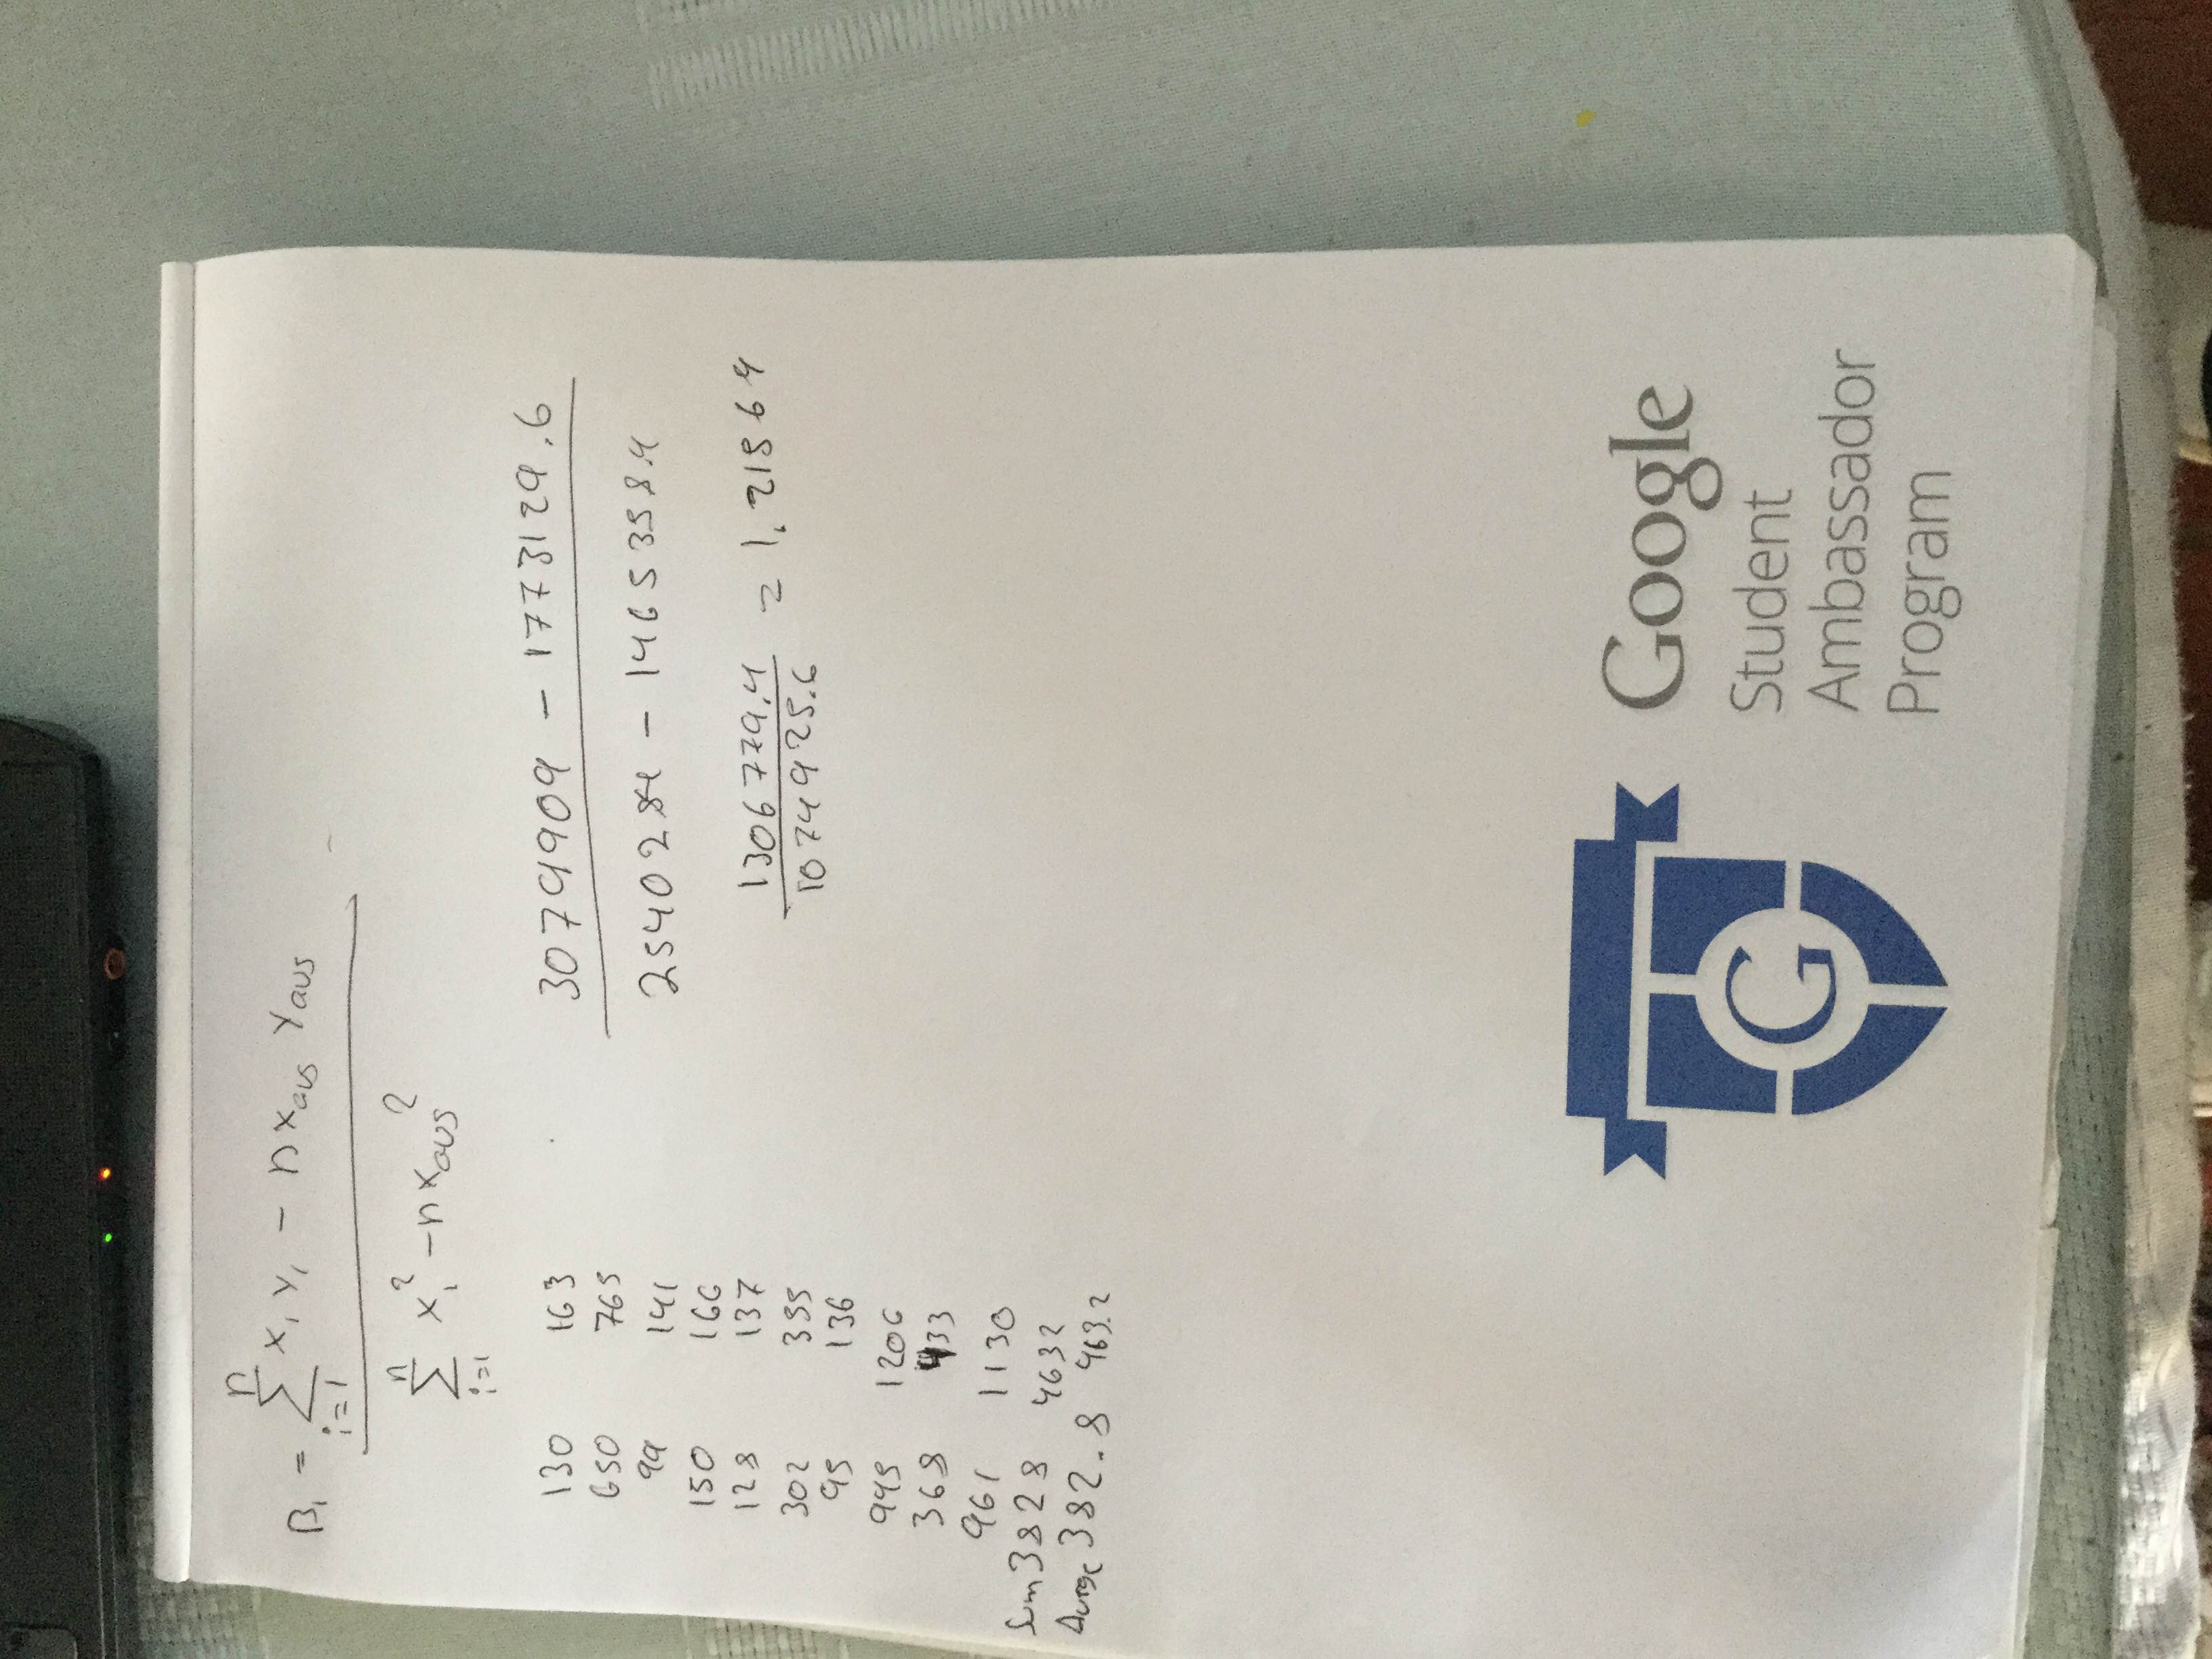 n
B₁ = Σ xᵢ yᵢ - n xavg yavg
i=1
n
Σ xᵢ² - n xavg²
i=1
130 163
650 765
99 141
150 166
128 137
302 355
95 136
945 1206
368 433
961 1130
Sum 3828 4632
382.8 463.2
3079909 - 1773129.6
2540284 - 1465358.4
1306779.4 = 1.21569
1074925.6
G
Google
Student
Ambassador
Program